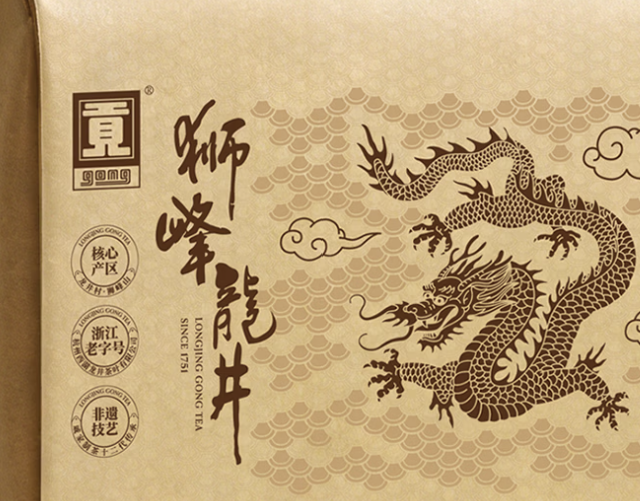 貢®
gong
狮峰龍井
LONGJING GONG TEA
SINCE 1751
LONGJING GONG TEA
核心
产区
龙井村·狮峰山
LONGJING GONG TEA
浙江
老字号
LONGJING GONG TEA
非遗
技艺
戚家制茶十二代传承